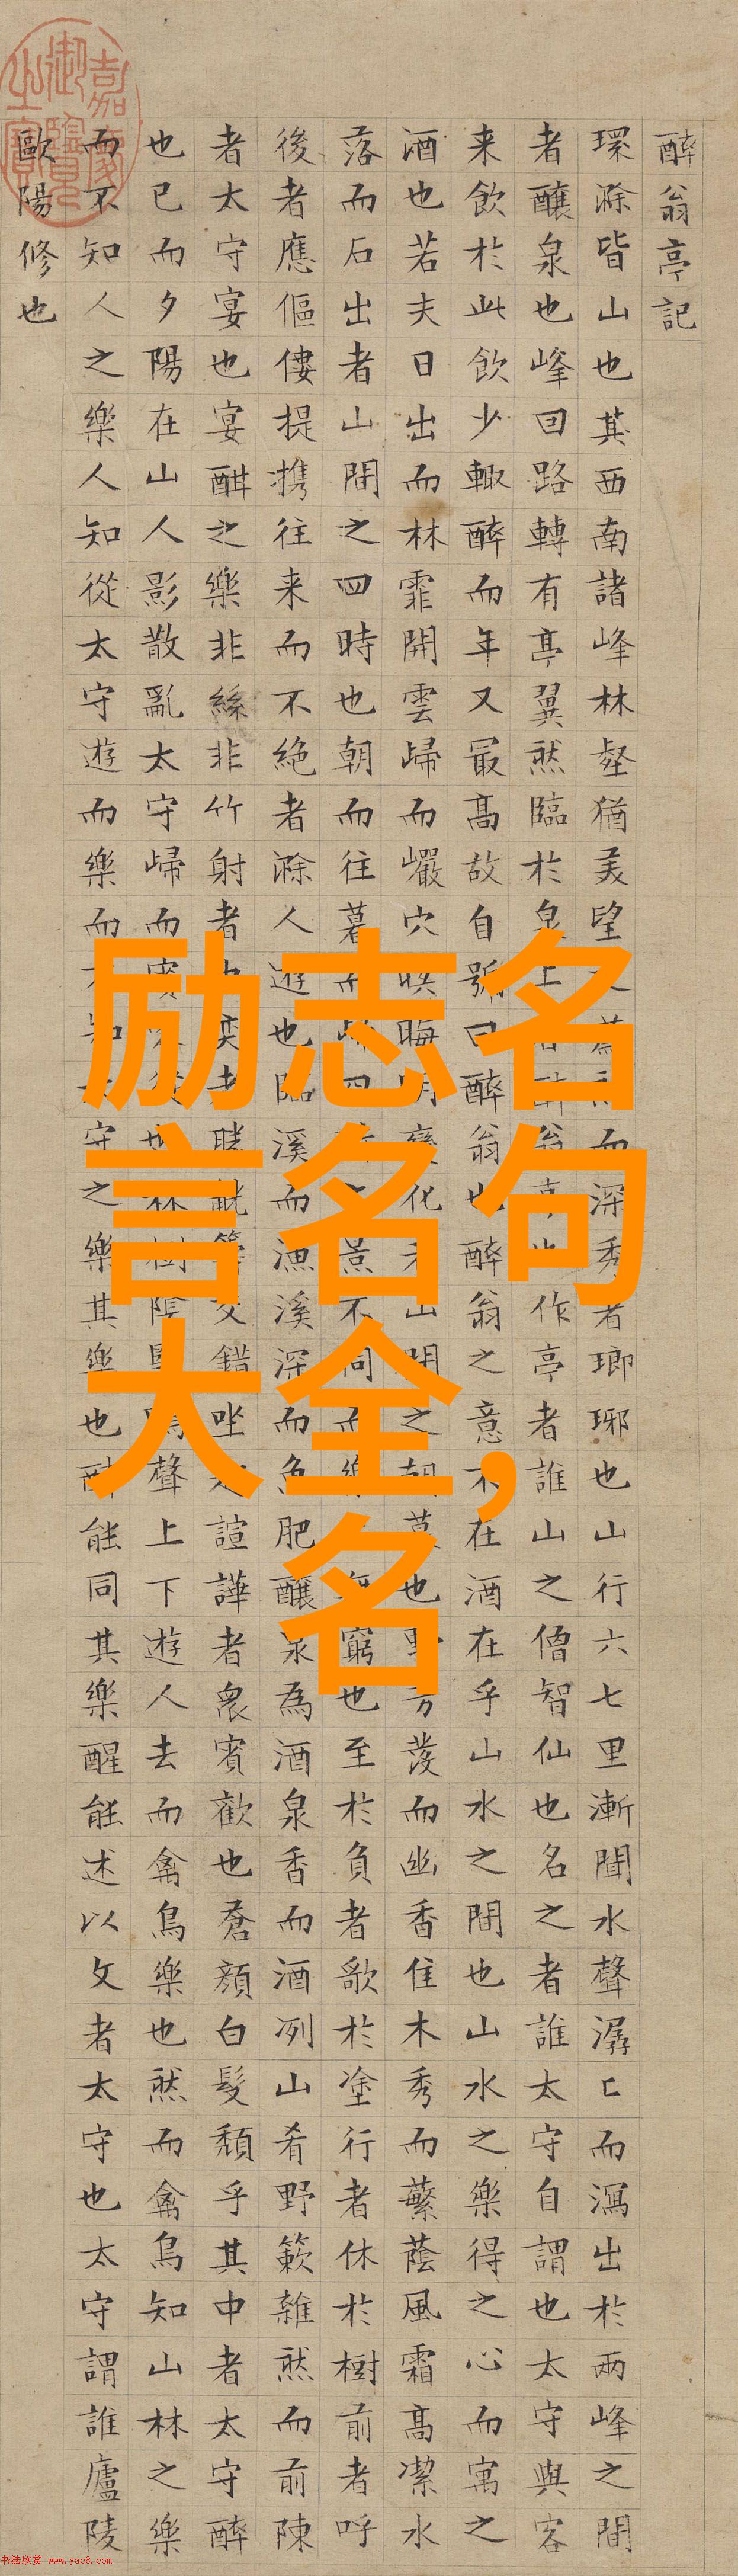 励志名
言名句
大全,
名
嘉慶御覽之寶
醉翁亭記
環滁皆山也其西南諸峰林壑猶美望之蔚然而深秀者瑯琊也山行六七里漸聞水聲潺〻而瀉出於兩峰之間
者醸泉也峰回路轉有亭翼然臨於泉上者醉翁亭也作亭者誰山之僧智仙也名之者誰太守自謂也太守與客
来飲於此飲少輙醉而年又最高故自號曰醉翁也醉翁之意不在酒在乎山水之間也山水之樂得之心而寓之
酒也若夫日出而林霏開雲歸而巖穴暝晦明變化者山間之朝暮也野芳發而幽香佳木秀而蘩蔭風霜高潔水
落而石出者山間之四時也朝而往暮而歸四時之景不同而樂無窮也至於負者歌於塗行者休於樹前者呼
後者應傴僂提携往来而不絶者滁人遊也臨溪而漁溪深而魚肥醸泉為酒泉香而酒冽山肴野簌雜然而前陳
者太守宴也宴酣之樂非絲非竹射者中奕者勝觥籌交錯坐起諠譁者衆賓歡也蒼顔白髮頽乎其中者太守醉
也已而夕陽在山人影散亂太守歸而賓客從也林樹陰翳鳴聲上下遊人去而禽鳥樂也然而禽鳥知山林之樂
而不知人之樂人知從太守遊而樂而不知太守之樂其樂也醉能同其樂醒能述以文者太守也太守謂誰廬陵
歐陽修也
书法欣赏 www.yac8.com